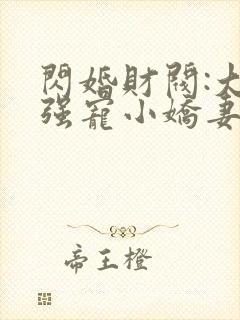 閃婚財閥:大
强寵小嬌妻
帝王橙